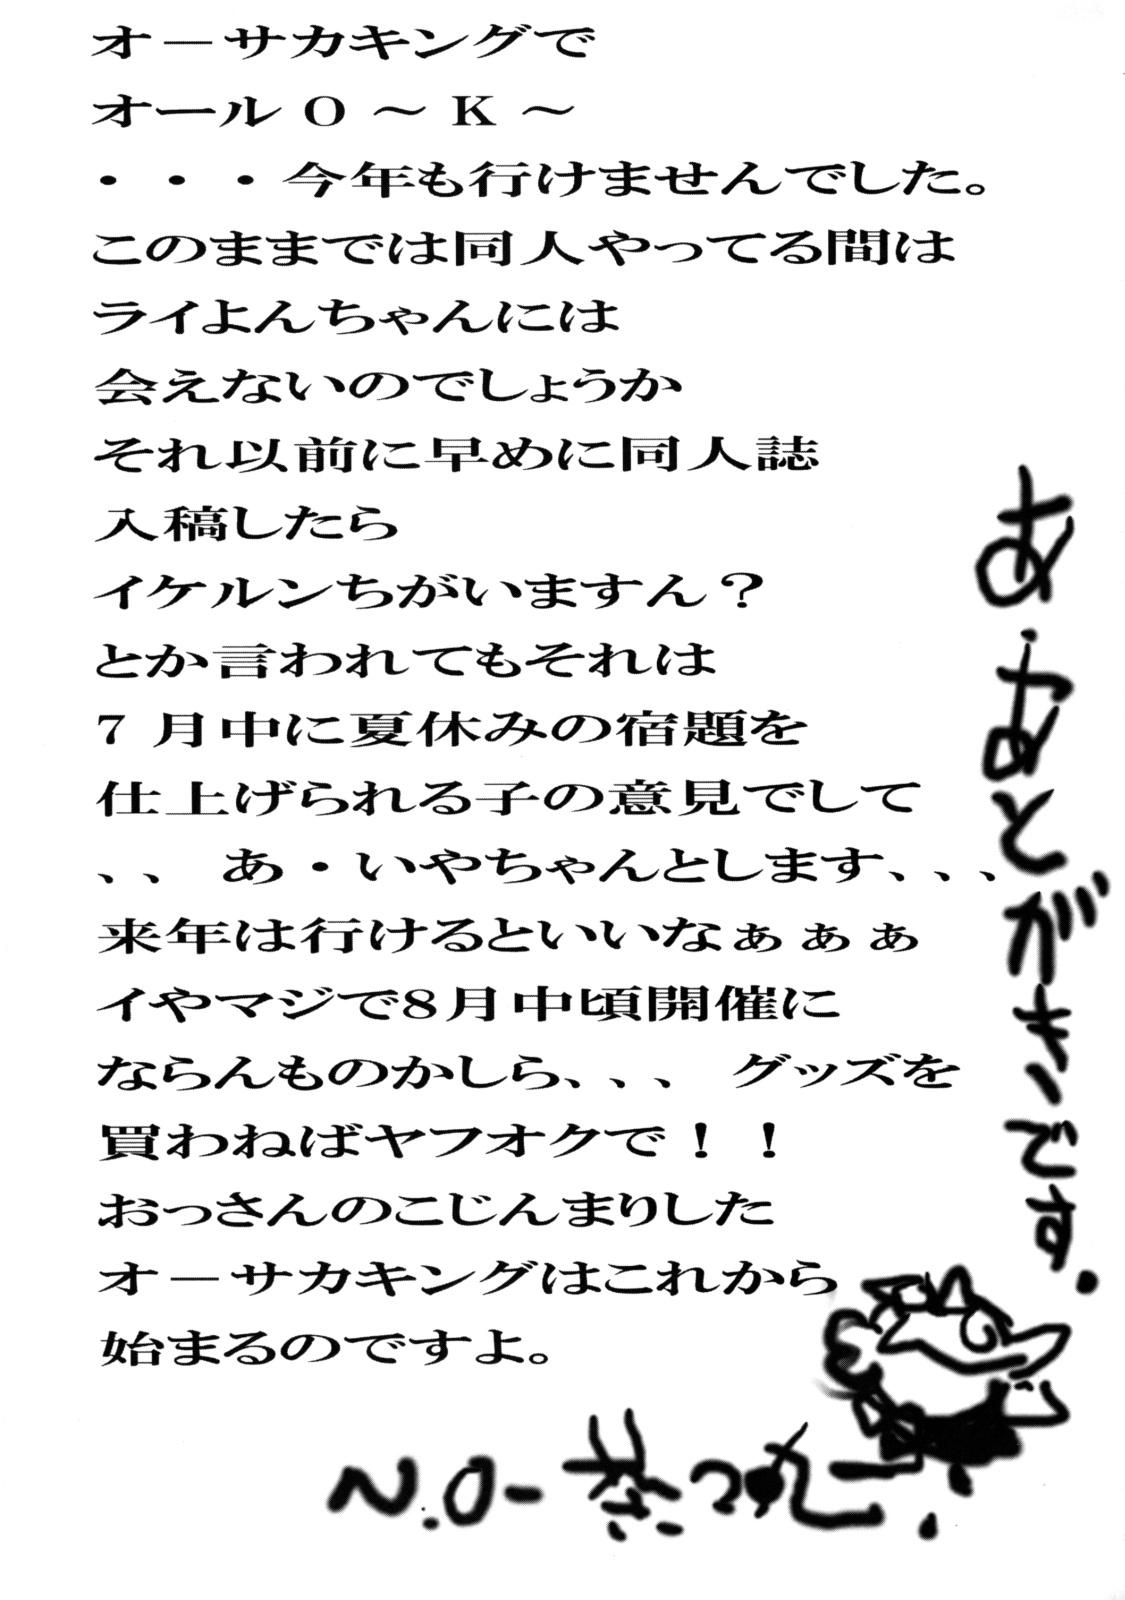 オーサカキングで
オールO～K～
・・・今年も行けませんでした。
このままでは同人やってる間は
ライよんちゃんには
会えないのでしょうか
それ以前に早めに同人誌
入稿したら
イケルンちがいますん？
とか言われてもそれは
7月中に夏休みの宿題を
仕上げられる子の意見でして
、、　あ・いやちゃんとします、、、
来年は行けるといいなぁぁぁ
イやマジで8月中頃開催に
ならんものかしら、、、　グッズを
買わねばヤフオクで！！
おっさんのこじんまりした
オーサカキングはこれから
始まるのですよ。
あ、あとがき、です.
N.O-